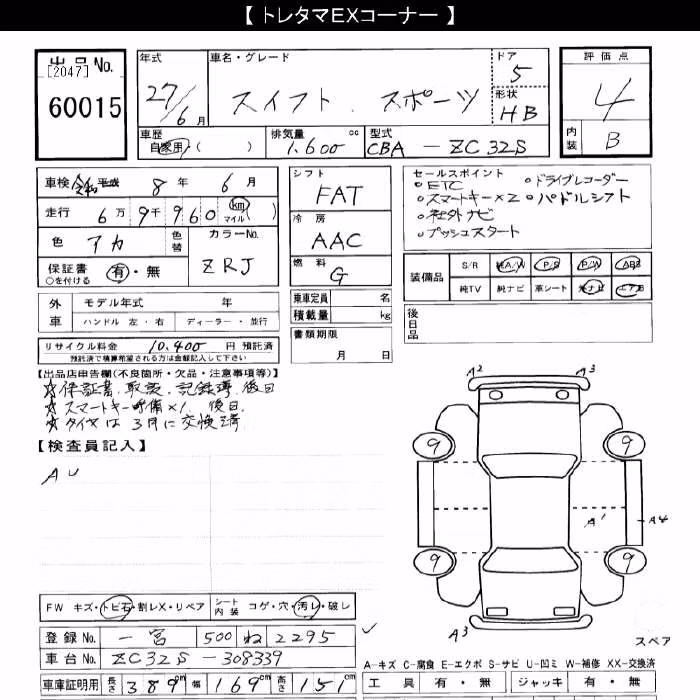 【 トレタマEXコーナー 】
出品No.
[2047]
60015
年式
27/6月
車名・グレード
スイフト スポーツ
ドア
5
形状
HB
評価点
4
内装
B
車歴
自家用・( )
排気量
1,600 cc
型式
CBA - ZC32S
車検 令和 平成 8年 6月
走行 6万9千960 km マイル( )
色 アカ
色替
カラーNo.
ZRJ
保証書 有・無
○を付ける
シフト
FAT
冷房
AAC
燃料
G
セールスポイント
◦ETC ◦ドライブレコーダー
◦スマートキー×2 ◦パドルシフト
◦社外ナビ
◦プッシュスタート
装備品
S/R 純A/W P/S P/W ABS
純TV 純ナビ 革シート 社ナビ エアB
外車
モデル年式 年
ハンドル 左・右 ディーラー・並行
乗車定員 名
積載量 kg
後日品
リサイクル料金 10,400 円 預託済
預託済で積算希望される方は金額記入して下さい
書類期限
月 日
【出品店申告欄(不良箇所・欠品・注意事項等)】
☆保証書、取説、記録簿 後日
☆スマートキー予備×1 後日
☆タイヤは3月に交換済
【検査員記入】
AU
A2 A3
9 9
A1 A4
9 9
A3
スペア
FW キズ・トビ石・割レX・リペア
シート内装 コゲ・穴・汚レ・破レ
登録No. 一宮 500 ね 2295
車台No. ZC32S-308339
車庫証明用 長さ 389cm 幅 169cm 高さ 151
A-キズ C-腐食 E-エクボ S-サビ U-凹ミ W-補修 XX-交換済
工具 有・無 ジャッキ 有・無